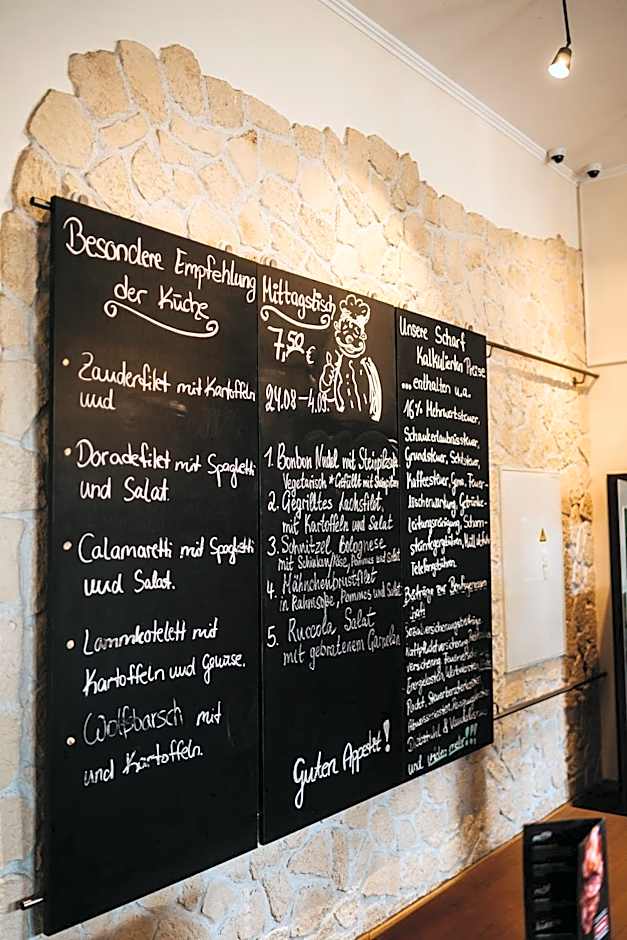 Besondere Empfehlung
der Küche
• Zanderfilet mit Kartoffeln
und
• Doradefilet mit Spaghetti
und Salat.
• Calamaretti mit Spaghetti
und Salat.
• Lammkotelett mit
Kartoffeln und Gemüse.
• Wolfsbarsch mit
und Kartoffeln.
Mittagstisch
7,50 €
24.08 – 4.09.
1. Bonbon Nudel mit
Vegetarisch * Gefüllt mit Steinpilzen
2. Gegrilltes Lachsfilet,
mit Kartoffeln und Salat
3. Schnitzel Bolognese
mit Schinken/Käse, Pommes und Salat
4. Hähnchenbrustfilet
in Rahmsoße, Pommes und Salat
5. Ruccola Salat
mit gebratenem Garnelen
Guten Appetit!
Unsere Scharf
Kalkulierten Preise
... enthalten u.a.
16% Mehrwertsteuer,
Schankerlaubnissteuer,
Grundsteuer,
Kaffeesteuer, Gema, Feuer-
löscherwartung, Getränke-
leitungsreinigung, Schorn-
steinfegergebühren, Müll
Telefongebühren.
Beiträge zur Berufsgenossen
Sozialversicherungsbeiträge
Haftpflichtversicherung
versicherung
Energiekosten,
Pacht, Steuerberaterkosten
Diebstahl & Vandalismus
und vieles mehr!!!